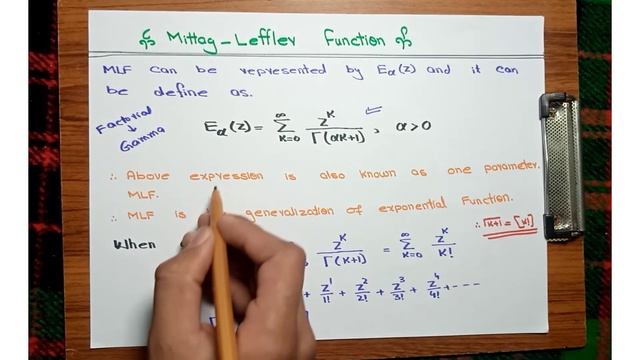 Mittag-Leffler Function
MLF can be represented by Eα(z) and it can
be define as.
Factorial
↓
Gamma
Eα(z) = ∑_{k=0}^{∞} z^k / Γ(αk+1) , α > 0
∴ Above expression is also known as one parameter
MLF.
∴ MLF is generalization of exponential Function.
∴ Γk+1 = [k!]
When
z^k / Γ(k+1) = ∑_{k=0}^{∞} z^k / k!
+ z^1/1! + z^2/2! + z^3/3! + z^4/4! + ---